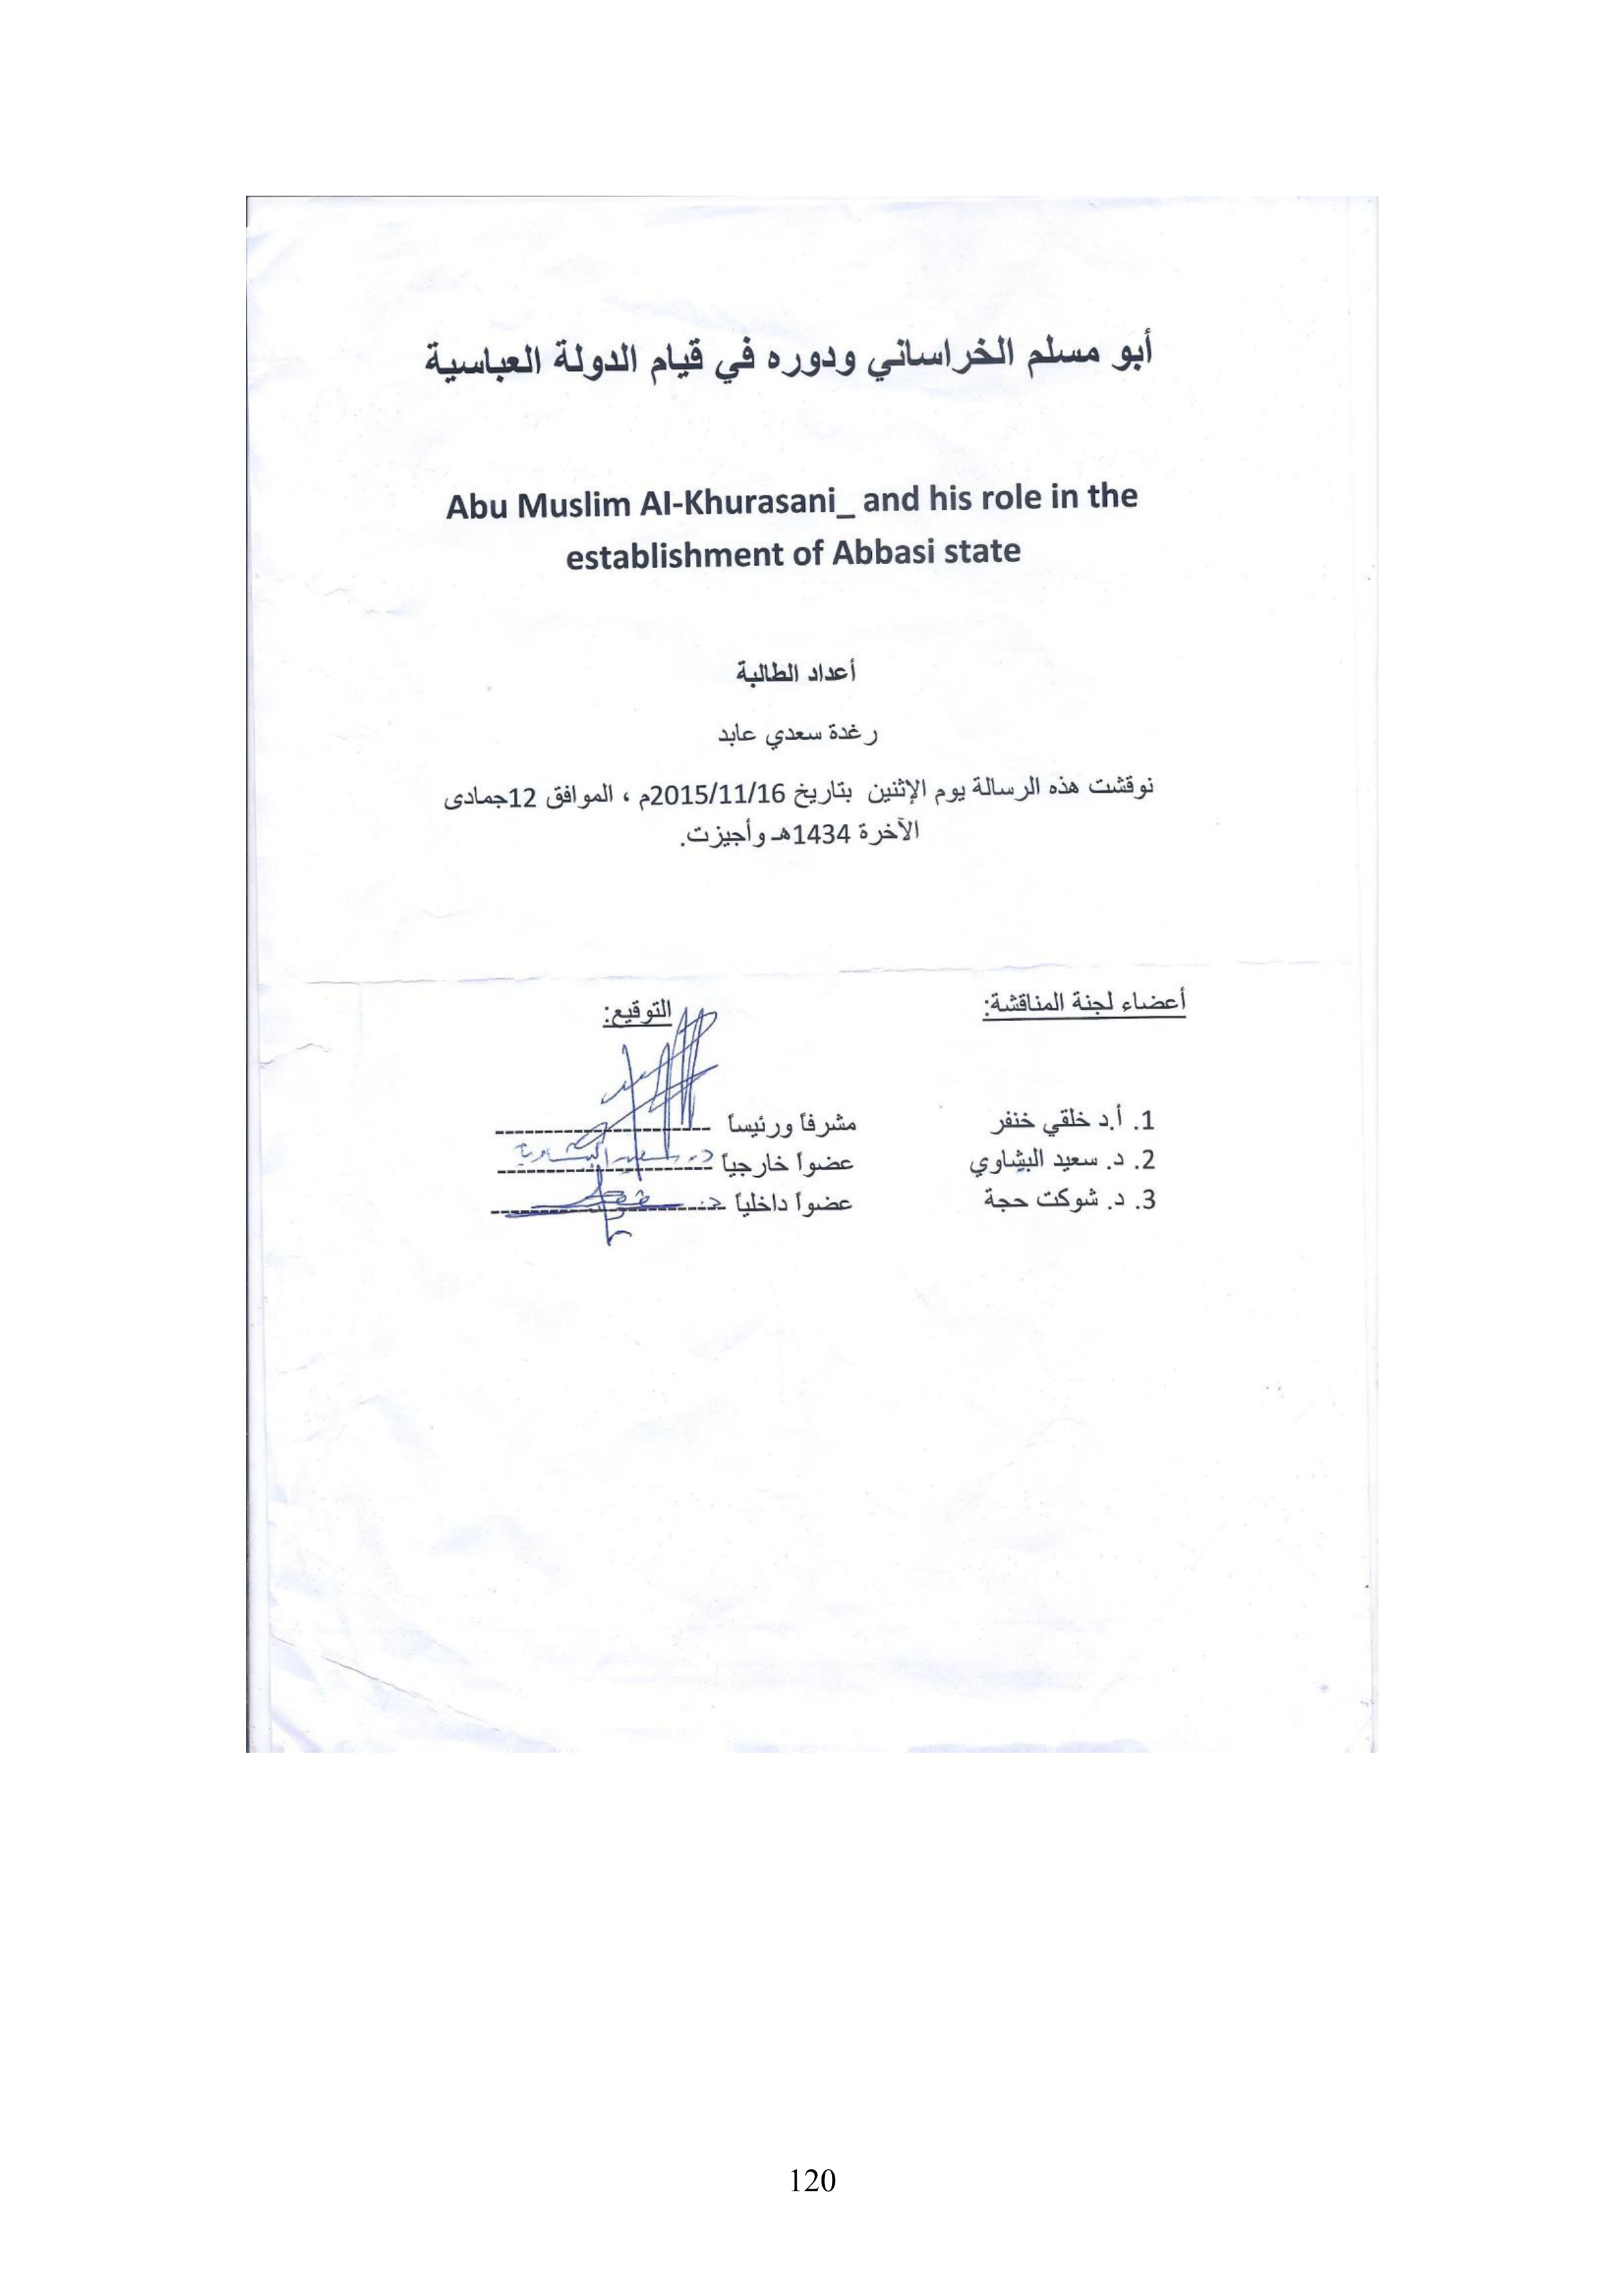 أبو مسلم الخراساني ودوره في قيام الدولة العباسية
Abu Muslim Al-Khurasani_ and his role in the
establishment of Abbasi state
أعداد الطالبة
رغدة سعدي عابد
نوقشت هذه الرسالة يوم الإثنين بتاريخ 2015/11/16م ، الموافق 12جمادى
الآخرة 1434هـ وأجيزت.
أعضاء لجنة المناقشة: التوقيع:
1. أ.د خلقي خنفر مشرفاً ورئيساً ----------------------
2. د. سعيد البشاوي عضواً خارجياً ---------------------- د. سعيد البيشاوي
3. د. شوكت حجة عضواً داخلياً ----------------------
120